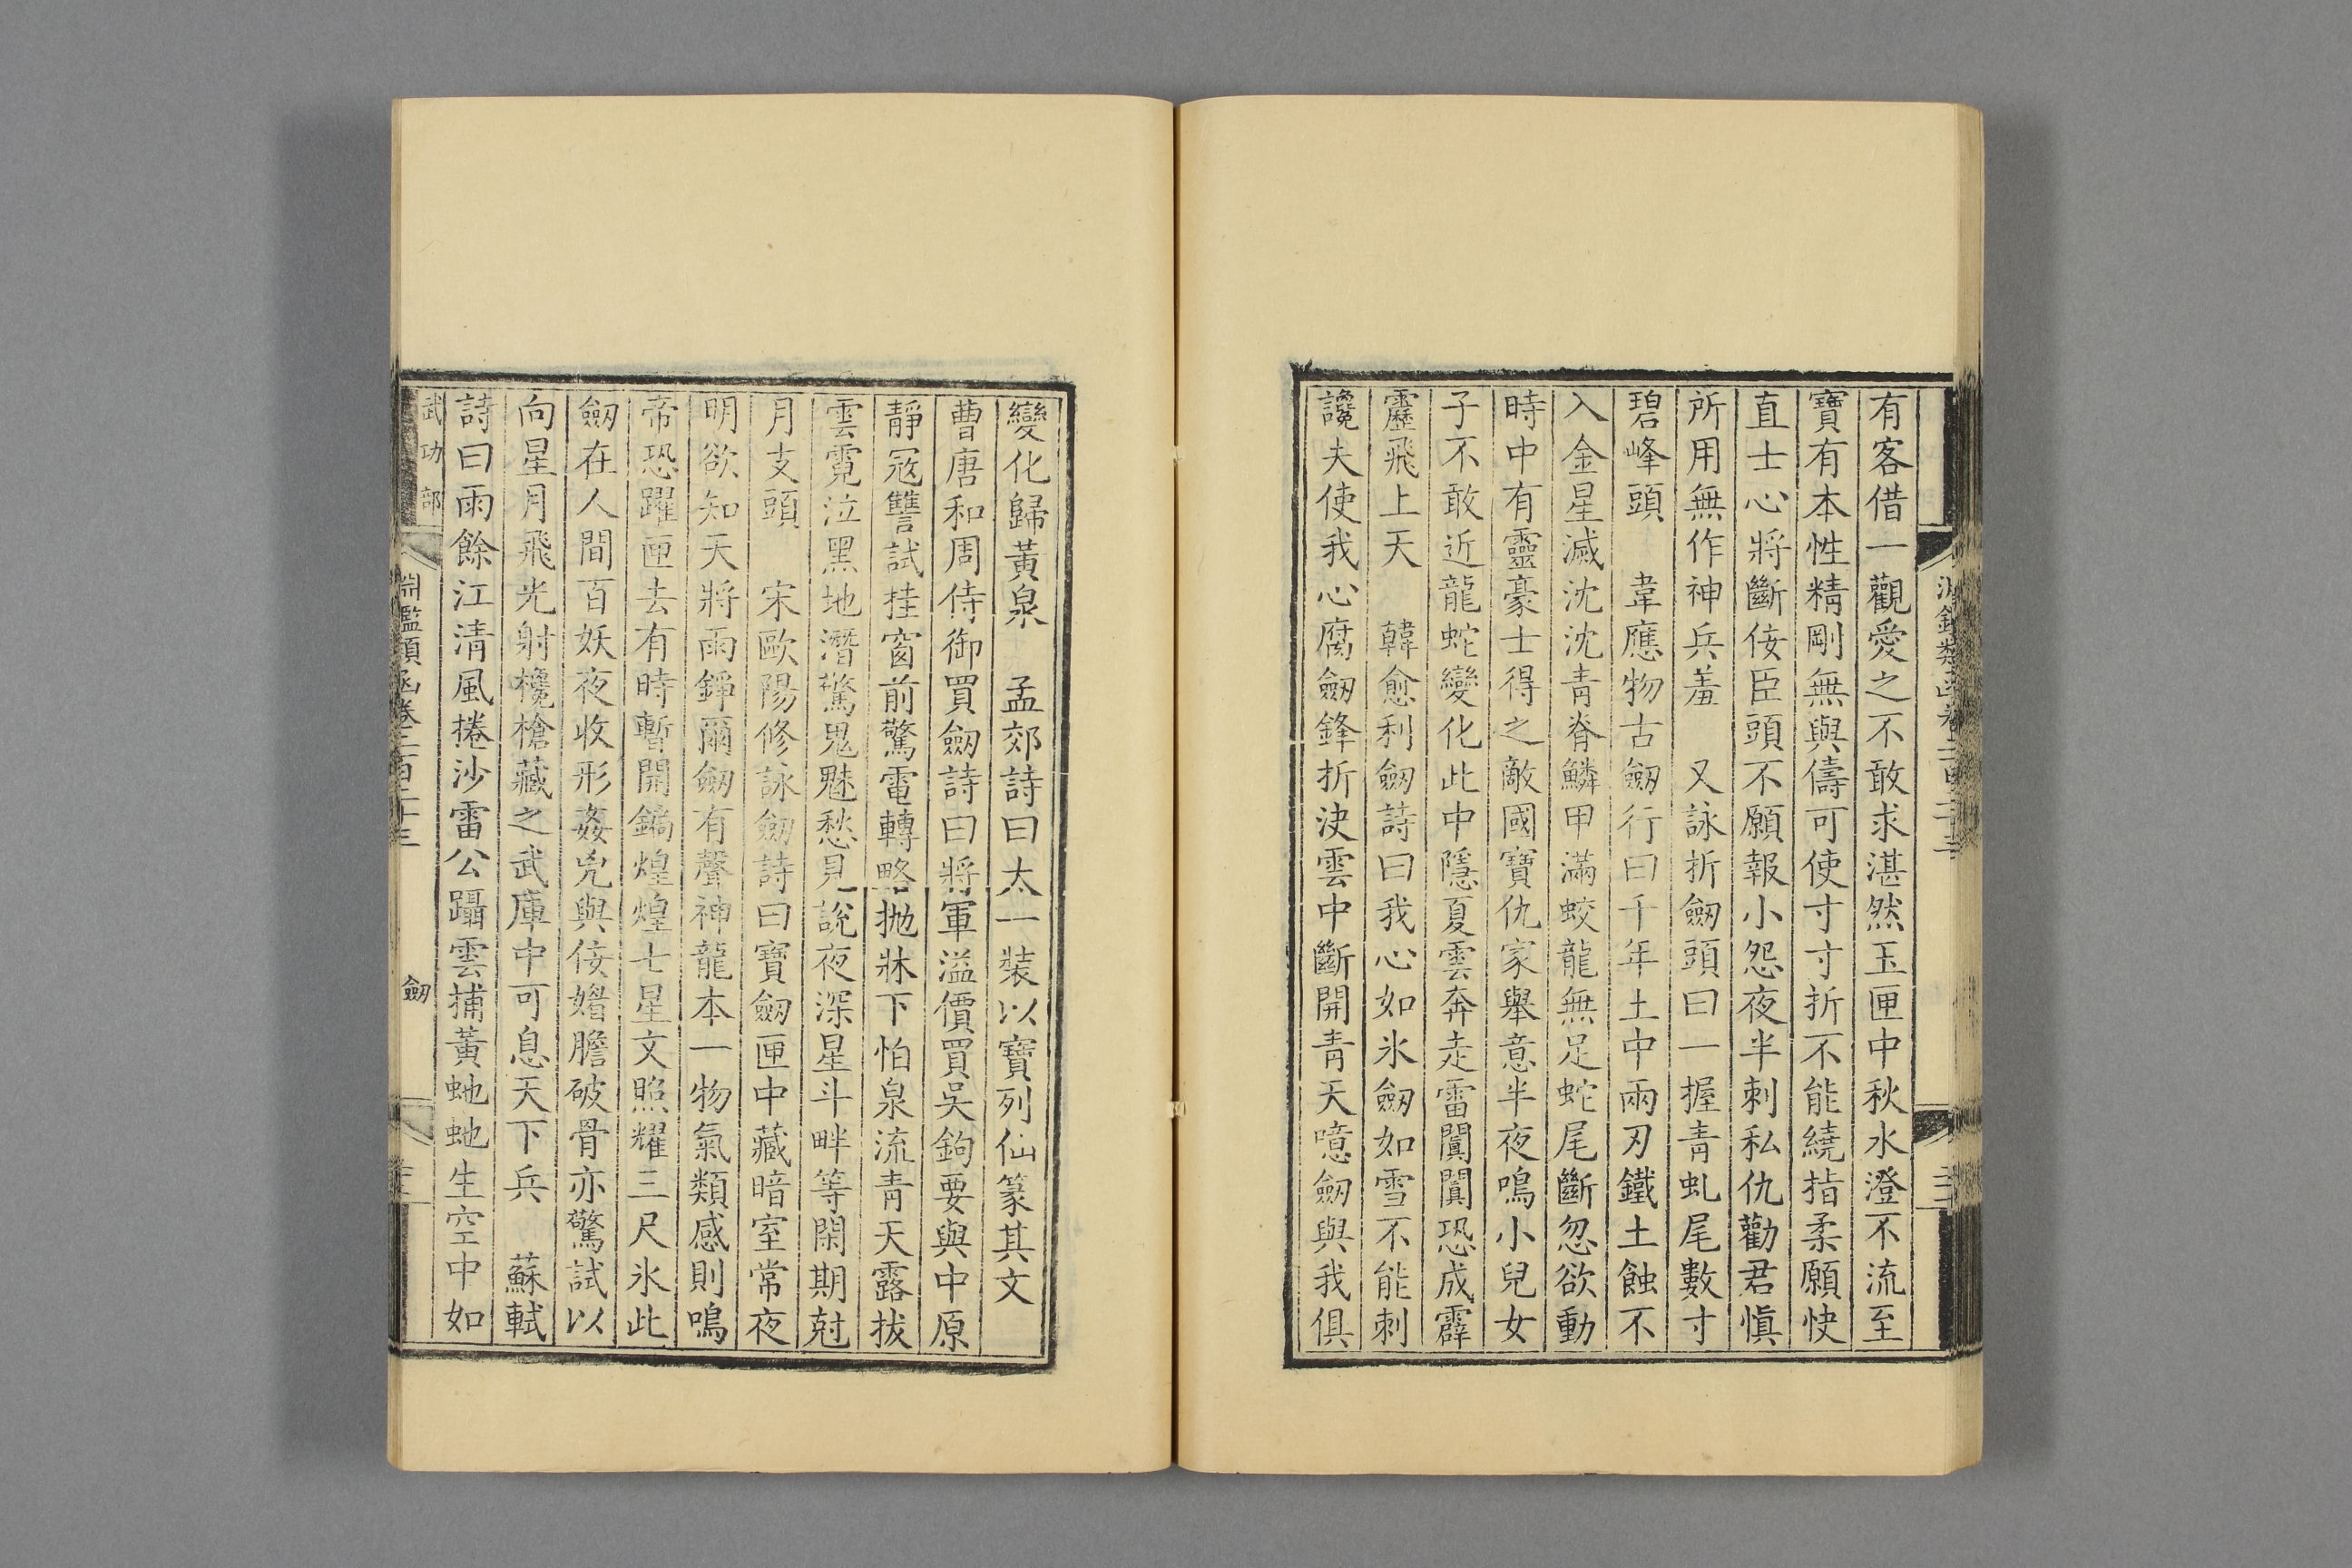 有客借一觀愛之不敢求湛然玉匣中秋水澄不流至
寶有本性精剛無與儔可使寸寸折不能繞指柔願快
直士心將斷佞臣頭不願報小怨夜半刺私仇勸君慎
所用無作神兵羞　又詠折劒頭曰一握青虬尾數寸
碧峰頭　韋應物古劒行曰千年土中兩刃鐵土蝕不
入金星滅沈沈青脊鱗甲滿蛟龍無足蛇尾斷忽欲動
時中有靈豪士得之敵國寶仇家舉意半夜鳴小兒女
子不敢近龍蛇變化此中隱夏雲奔走雷闐闐恐成霹
靂飛上天　韓愈利劒詩曰我心如氷劒如雪不能刺
讒夫使我心腐劒鋒折決雲中斷開青天噫劒與我俱
變化歸黃泉　孟郊詩曰太一裝以寶列仙篆其文
曹唐和周侍御買劒詩曰將軍溢價買吳鉤要與中原
靜寇讐試挂窗前驚電轉略拋牀下怕泉流青天露拔
雲霓泣黑地潛驚鬼魅愁見說夜深星斗畔等閑期尅
月支頭　宋歐陽修詠劒詩曰寶劒匣中藏暗室常夜
明欲知天將雨錚爾劒有聲神龍本一物氣類感則鳴
帝恐躍匣去有時暫開鐍煌煌七星文照耀三尺氷此
劒在人間百妖夜收形姦兇與佞媢膽破骨亦驚試以
向星月飛光射欃槍藏之武庫中可息天下兵　蘇軾
詩曰雨餘江清風捲沙雷公躡雲捕黃虵虵生空中如
武功部
淵鑑類函卷二百二十三
劒